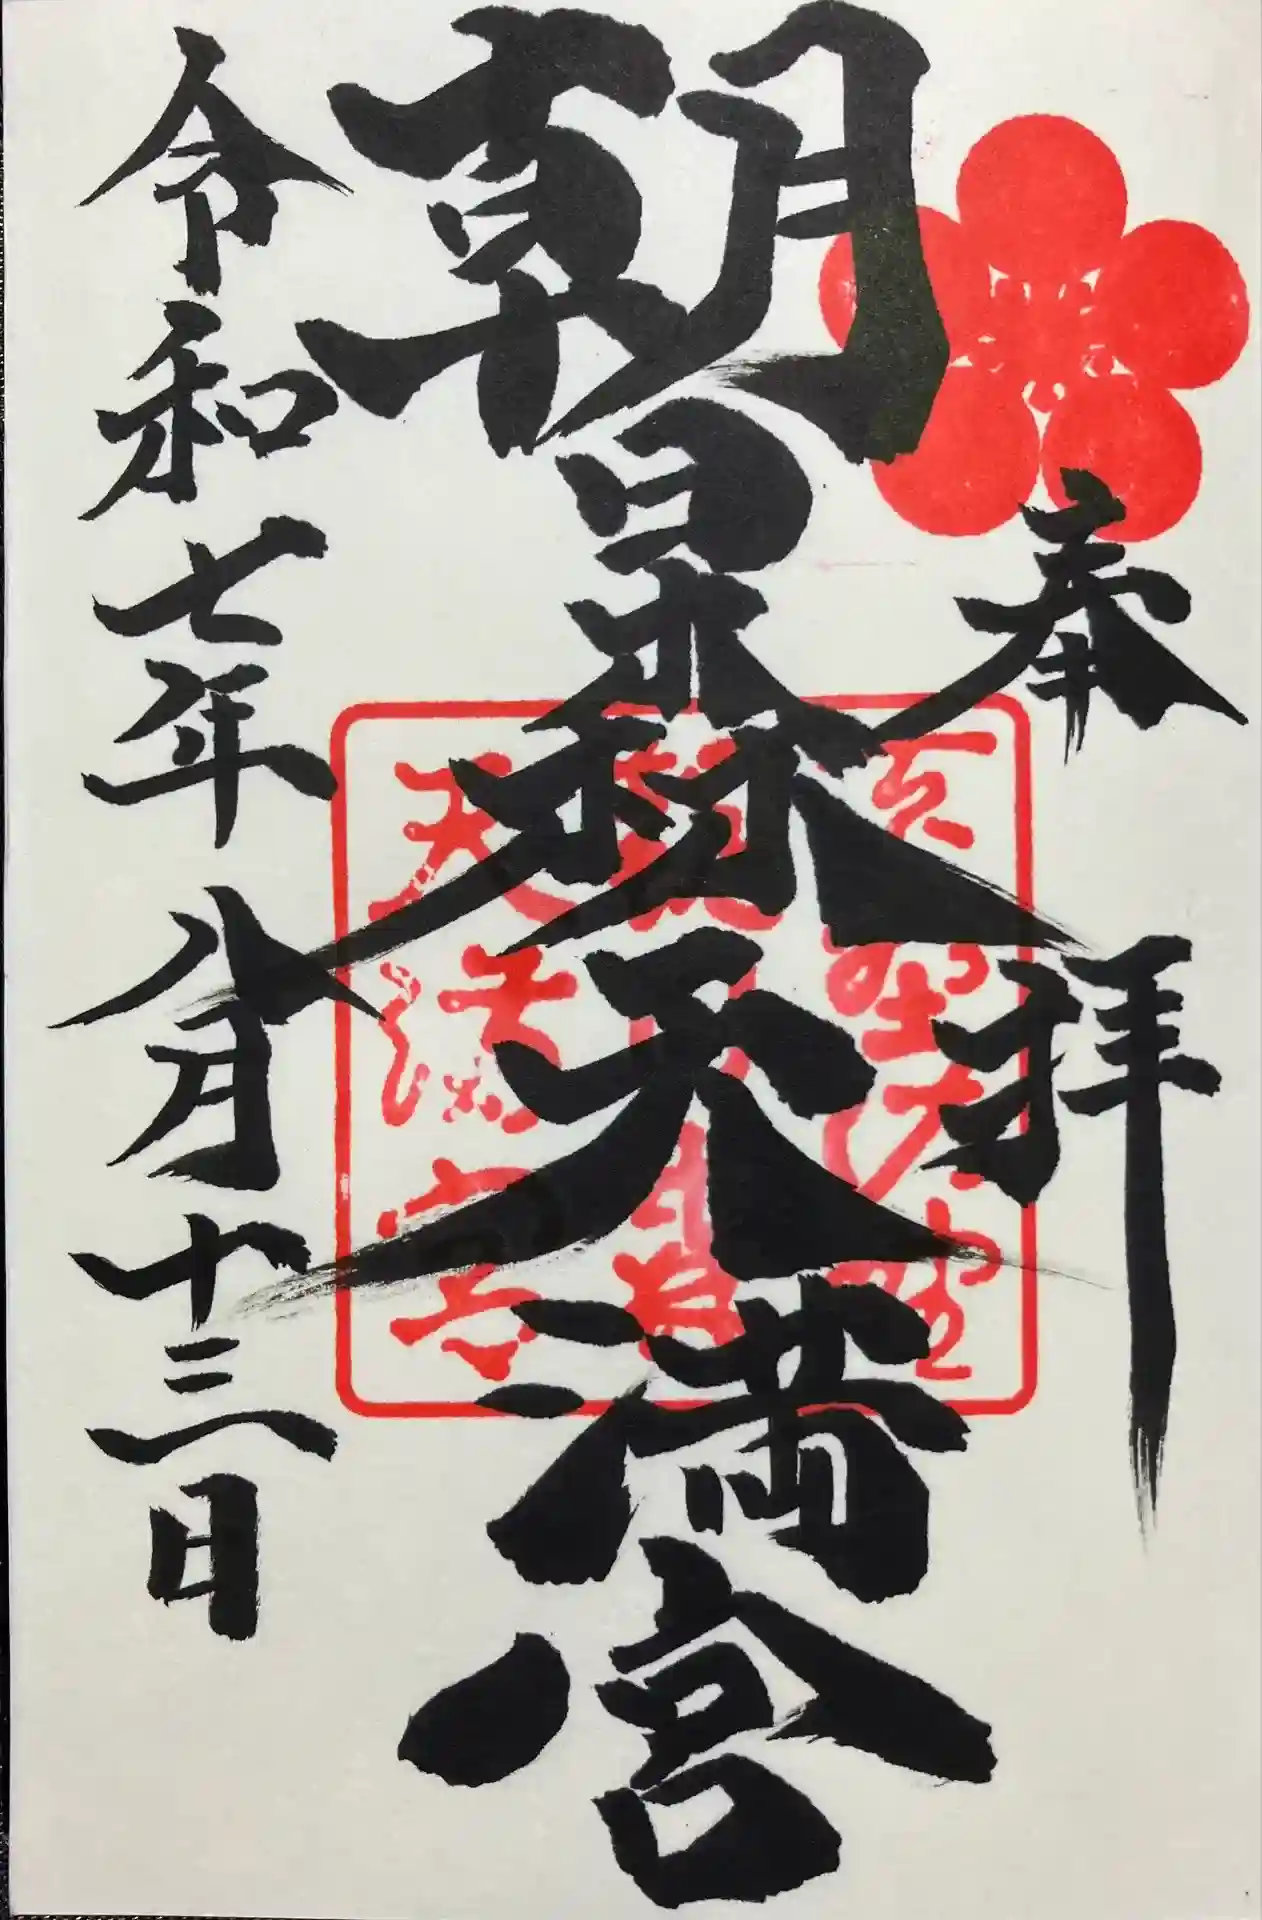 奉拝
朝日森天満宮
令和七年八月十三日
天満宮